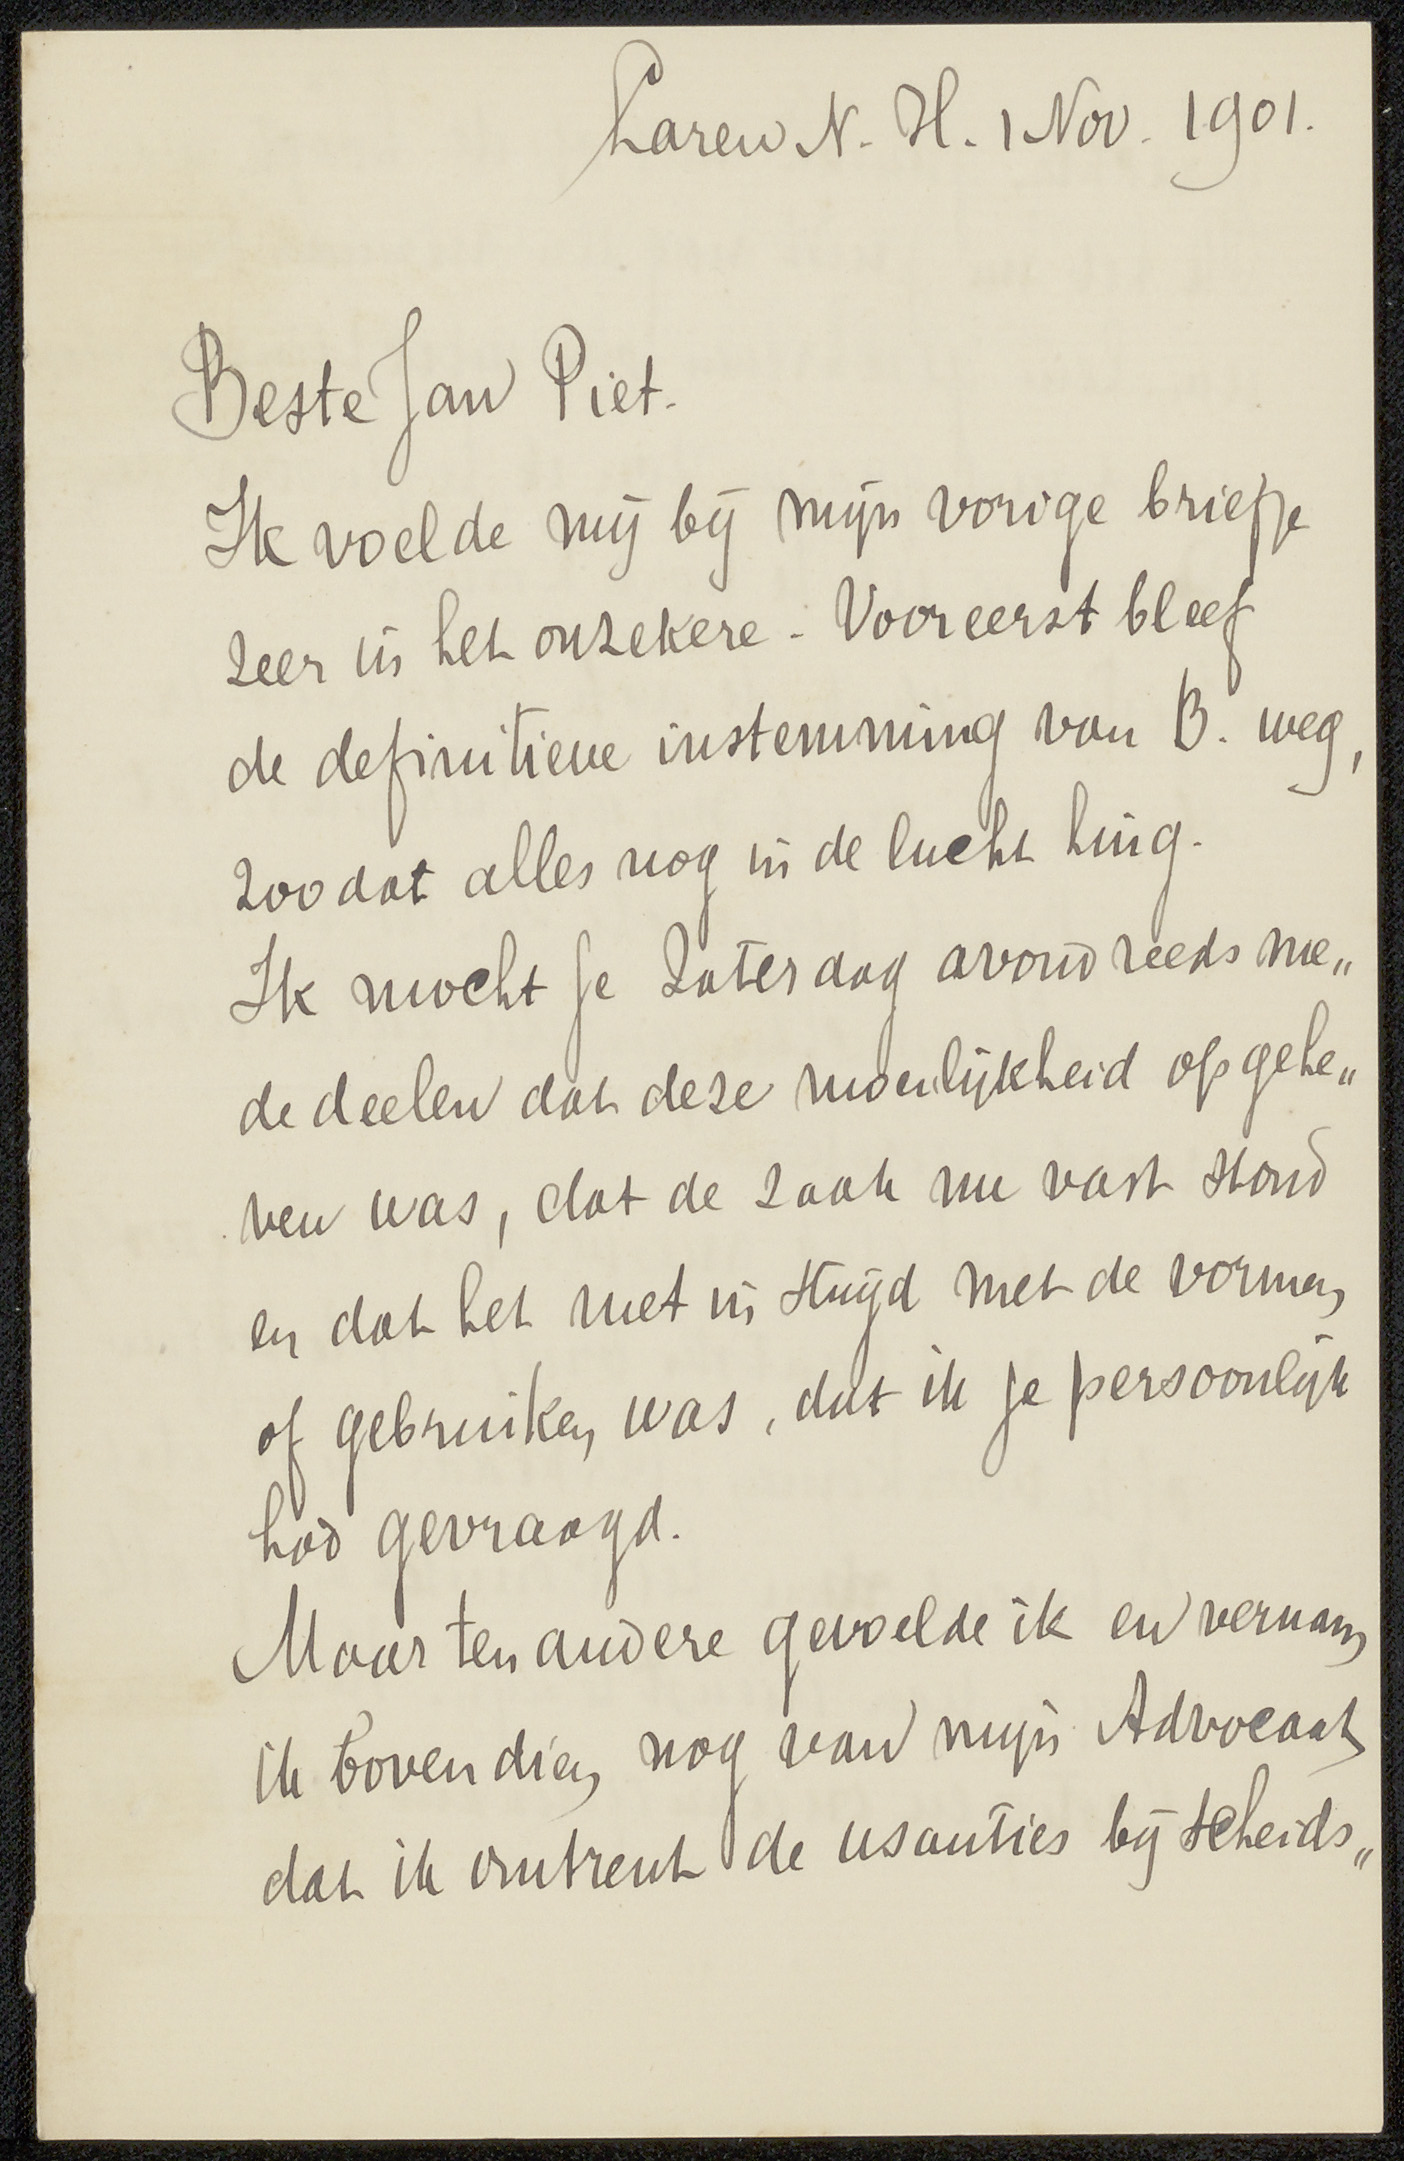 Laren N. H. 1 Nov. 1901.
Beste Jan Piet.
Ik voelde mij bij mijn vorige briefje
zeer in het onzekere - Vooreerst bleef
de definitieve instemming van B. weg,
zoodat alles nog in de lucht hing.
Ik mocht je Zaterdag avond reeds me„
dedeelen dat deze moeilijkheid opgehe„
ven was, dat de zaak nu vast stond
en dat het niet in strijd met de vormen
of gebruiken was, dat ik je persoonlijk
had gevraagd.
Maar ten andere gevoelde ik en vernam
ik bovendien nog van mijn Advocaat
dat ik omtrent de usanties bij scheids„